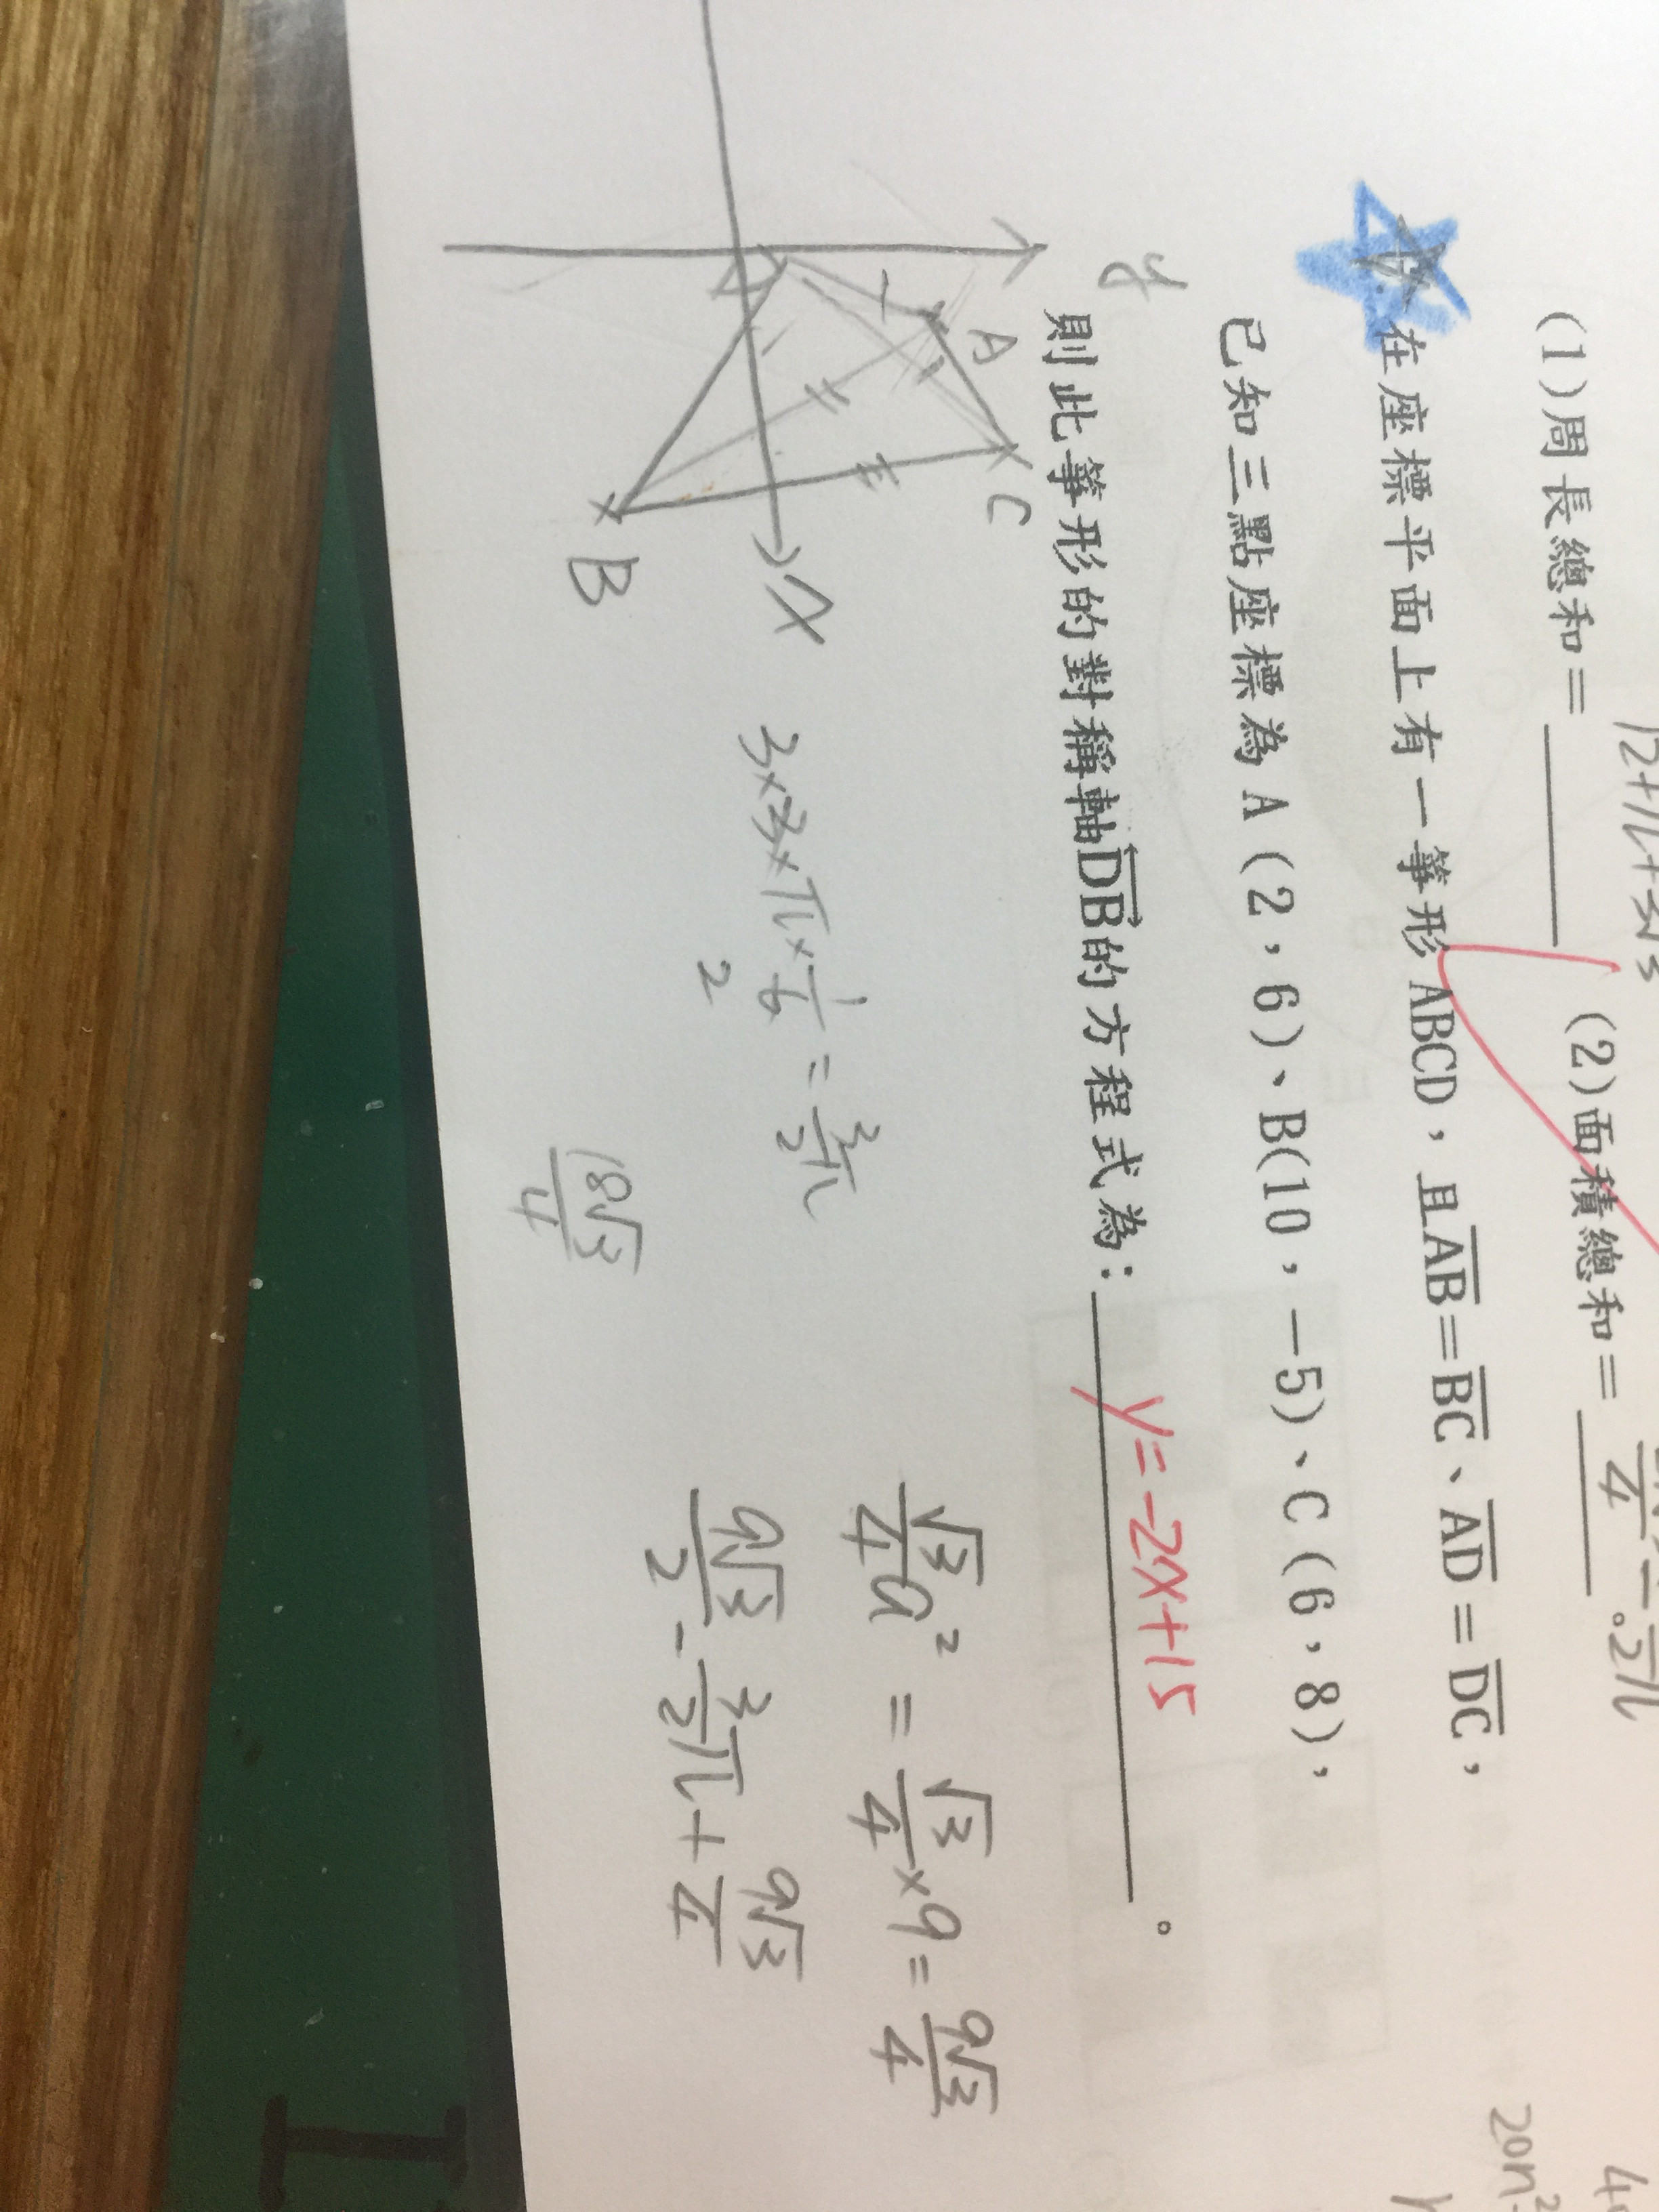 12+π+3√3
(1)周長總和＝＿＿＿ (2)面積總和＝＿＿＿。
在座標平面上有一箏形 ABCD，且AB＝BC、AD＝DC，
已知三點座標為 A (2，6)、B(10，－5)、C (6，8)，
則此箏形的對稱軸DB的方程式為：＿＿＿。
y=-2x+15
y
A
C
x
B
3×3×π×1/6=3/2π
2
18√3/4
√3/4a²=√3/4×9=9√3/4
9√3/2-3/2π+9√3/4
20n²